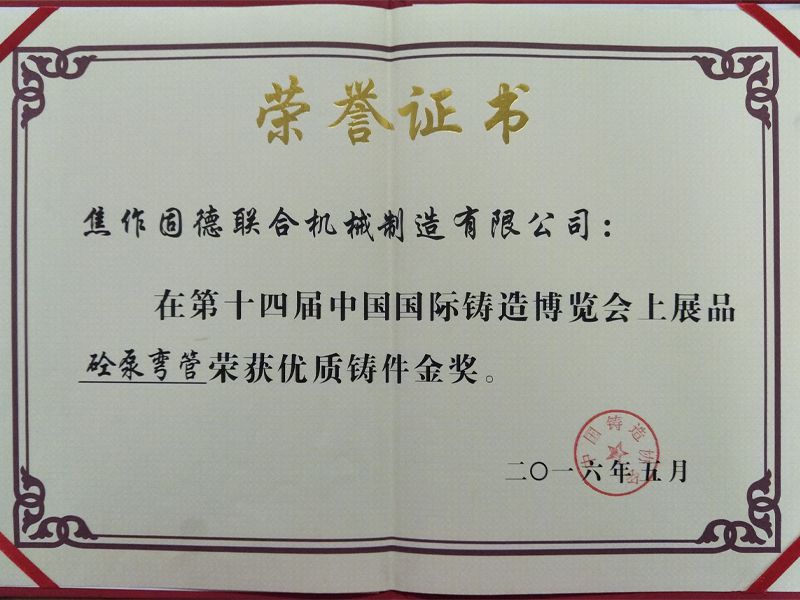 荣誉证书
焦作固德联合机械制造有限公司：
在第十四届中国国际铸造博览会上展品
砼泵弯管荣获优质铸件金奖。
中国铸造协会
二〇一六年五月